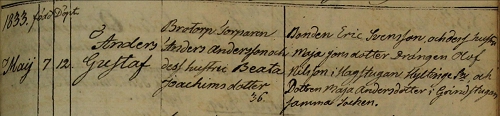 1833. född Döpt.
Maij 7 12. Anders Gustaf
Brotorp Torparen
Anders Andersson och
dess hustru Beata
Joachimsdotter
36.
Bonden Eric Svensson, och dess hustru
Maja Jonsdotter Drängen Olof
Nilsson i Hagstugan Hyltinge Sn, och
Dottren Maja Andersdotter i Grindstugan
samma Socken.